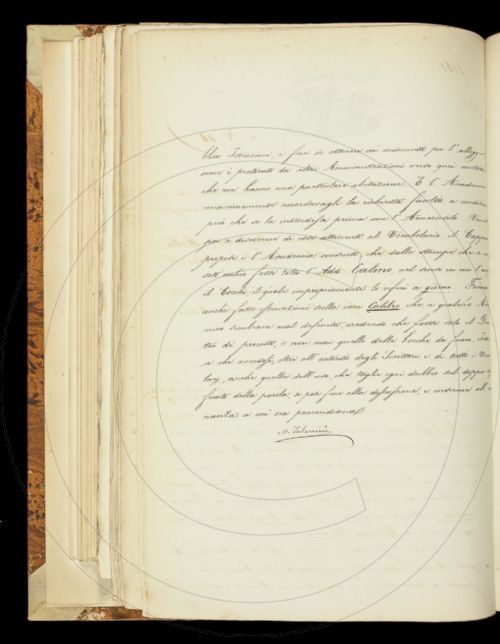 blica Istruzione, a fine di ottenere un indennità per l'allogg
come è praticato da altre Amministrazioni verso quei
che non hanno una particolare abitazione. E l'Accademia
unanimemente accordavagli la richiesta facoltà
però che se la intendesse prima con l'Arciconsolo
poi a discorrere di cose attenenti al Vocabolario, il
propose e l'Accademia consentì che dalle stampe che
sott'occhio fosse tolto l'Add. Calino, nel senso in cui l'
il Cocchi il quale impropriamente lo riferì a giorno
anche fatte osservazioni sulla voce Calibro, che a qualche
mico sembrava mal definita, credendo che fosse solo il
tro di pezzetto, e non mai quello della bocca da fuoco
a che avendosi, oltre all'autorità degli Scrittori e di
anche quella dell'uso, che toglie ogni dubbio sul doppio
ficato della parola, si pose fine alla discussione, e insieme all'
nanza a un'ora pomeridiana.